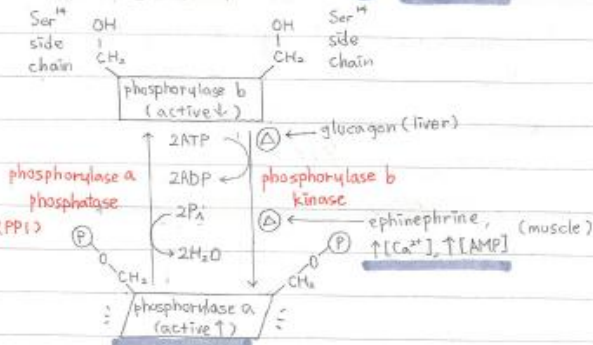 Ser¹⁴
side
chain
OH
CH₂
OH
CH₂
Ser¹⁴
side
chain
phosphorylase b
(active↓)
2ATP
△ ← glucagon (liver)
phosphorylase a
phosphatase
(PP1)
2ADP
phosphorylase b
kinase
2Pi
△ ← ephinephrine, (muscle)
↑[Ca²⁺], ↑[AMP]
2H₂O
P
O
CH₂
P
O
CH₂
phosphorylase a
(active↑)